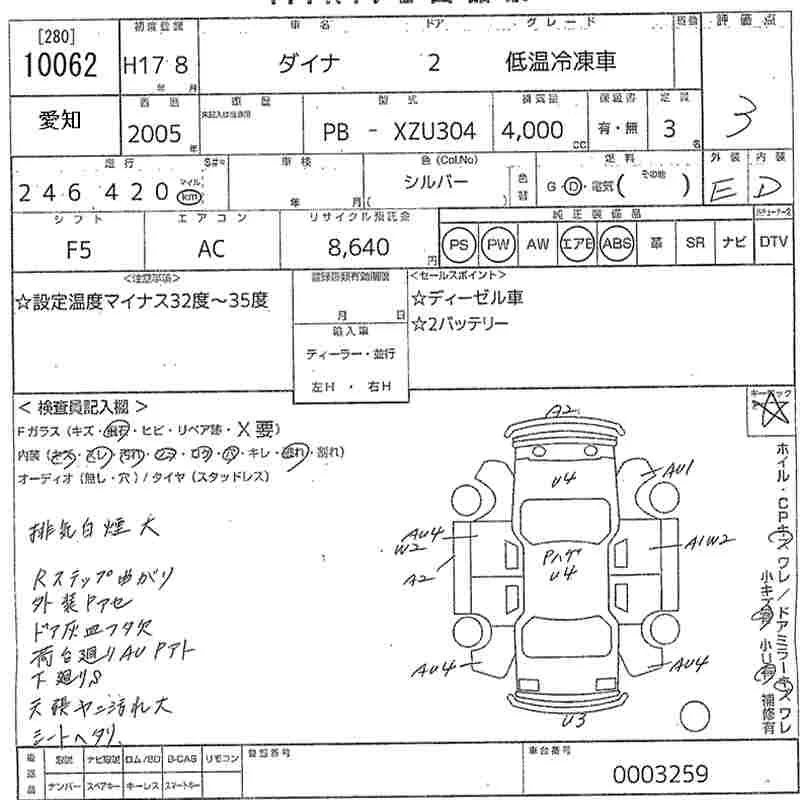 [280]
10062
初度登録
H17 8
年 月
車名 ドア グレード
ダイナ 2 低温冷凍車
評価点
3
愛知
2005
年
車歴
未記入は自家用
型式
PB - XZU304
排気量
4,000
CC
保証書
有・無
定員
3
名
走行 S#=
246420
マイル
km
車検
年 月
色(Col.No)
シルバー
( )
色替
燃料
G・D・電気( その他 )
外装 内装
E D
シフト エアコン リサイクル預託金
F5 AC 8,640
円
純正装備品
PS PW AW エアB ABS 革 SR ナビ DTV
<注意事項>
☆設定温度マイナス32度～35度
登録書類有効期限
月 日
輸入車
ディーラー・並行
左H ・ 右H
<セールスポイント>
☆ディーゼル車
☆2バッテリー
< 検査員記入欄 >
Fガラス (キズ・飛石・ヒビ・リペア跡・X要)
内装 (キズ・スレ・汚れ・コゲ・ロク・穴・キレ・破れ・割れ)
オーディオ (無し・穴) / タイヤ (スタッドレス)
排気白煙大
Rステップ曲がり
外装Pアセ
ドア灰皿フタ欠
荷台廻りAU Pアト
下廻りS
天張ヤニ汚れ大
シートヘタリ
A2
U4
AU1
AU4
W2
A2
Pハゲ
U4
A1W2
AU4
AU4
U3
ホイル・CPキズ ワレ / ドアミラーキズ ワレ
小キズ有 小U有 補修有
後送品
取説 ナビ取説 ロム/BD B-CAS リモコン
ナンバー スペアキー キーレス スマートキー
登録番号
車台番号
0003259